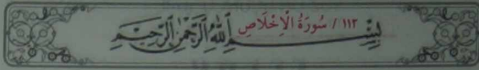 ١١٢ / سُورَةُ الْإِخْلَاصِ
بِسْمِ اللَّهِ الرَّحْمَٰنِ الرَّحِيمِ